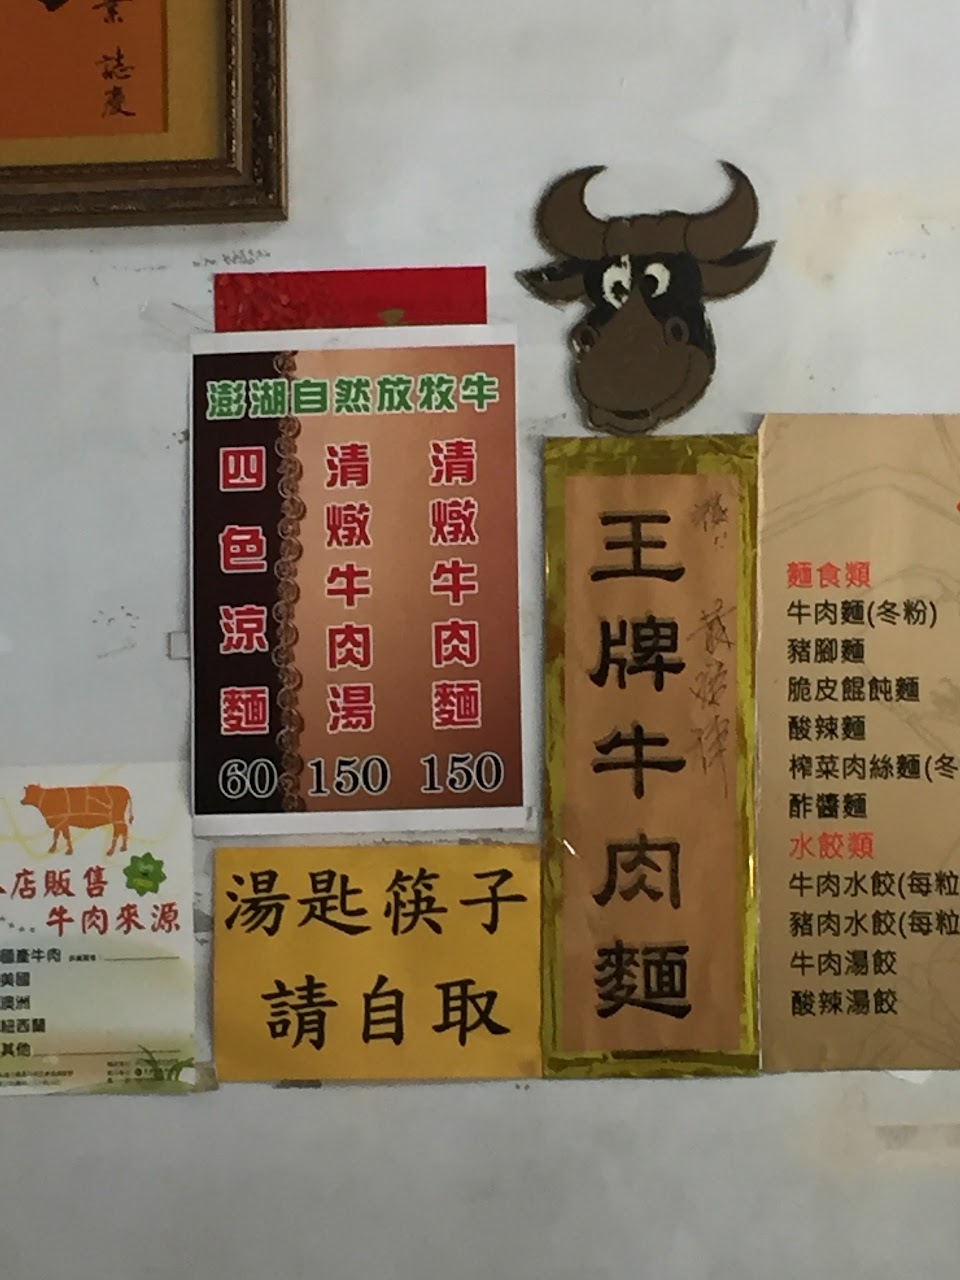 業
誌慶
澎湖自然放牧牛
清燉牛肉麵
150
清燉牛肉湯
150
四色涼麵
60
湯匙筷子
請自取
王牌牛肉麵
麵食類
牛肉麵(冬粉)
豬腳麵
脆皮餛飩麵
酸辣麵
榨菜肉絲麵(冬
酢醬麵
水餃類
牛肉水餃(每粒
豬肉水餃(每粒
牛肉湯餃
酸辣湯餃
店販售
牛肉來源
國產牛肉
美國
澳洲
紐西蘭
其他